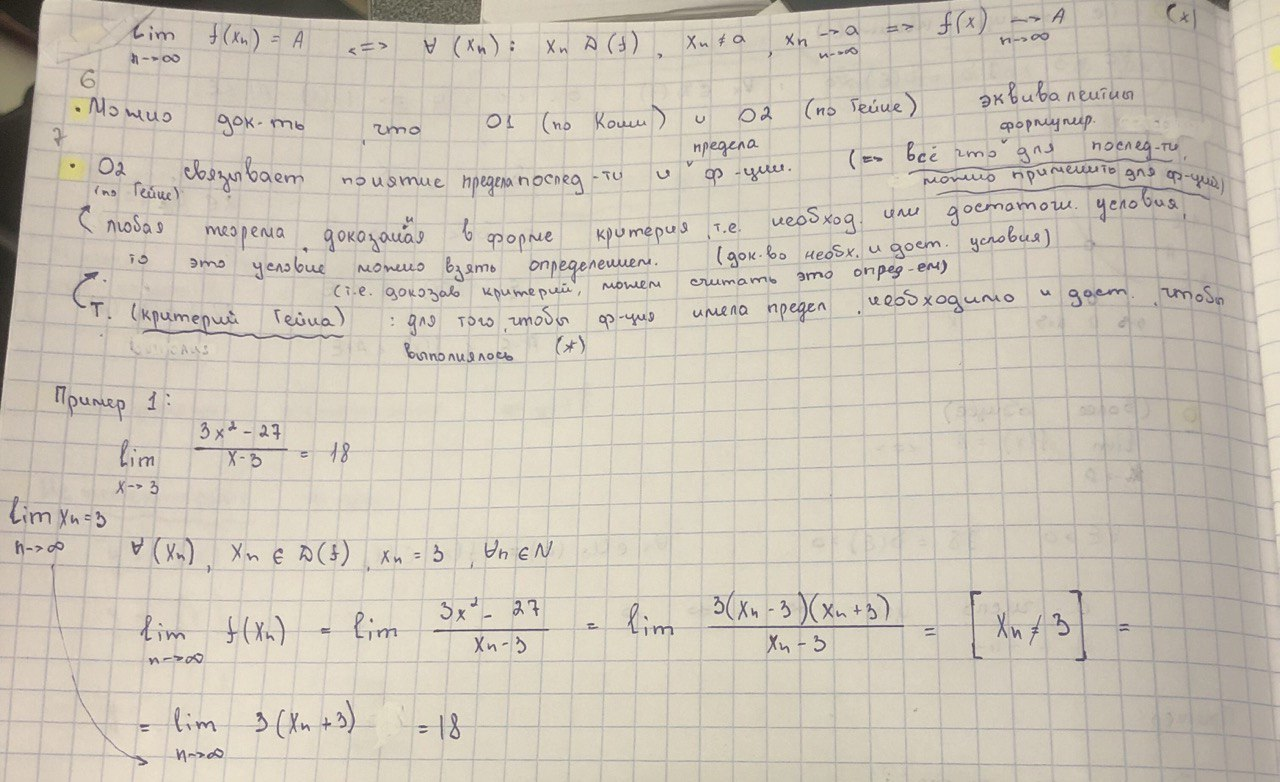 lim f(xn) = A <=> ∀ (xn): xn D(f), xn ≠ a, xn → a => f(x) → A (*)
n→∞ n→∞ n→∞
6
• Можно док-ть, что O1 (по Коши) и O2 (по Гейне) эквивалентны
формулир.
7
предела
• O2 связывает понятие предела послед-ти и ф-ции. (=> всё что для послед-ти,
(по Гейне) можно применить для ф-ций)
любая теорема, доказанная в форме критерия, т.е. необход. или достаточн. условия,
то это условие можно взять определением. (док-во необх. и дост. условия)
(т.е. доказав критерий, можем считать это опред-ем)
Т. (критерий Гейна) : для того, чтобы ф-ция имела предел, необходимо и дост., чтобы
выполнялось (*)
Пример 1:
lim 3x² - 27 / x-3 = 18
x→3
lim xn = 3
n→∞ ∀(xn), xn ∈ D(f), xn = 3, ∀n ∈ N
lim f(xn) = lim 3x² - 27 / xn-3 = lim 3(xn-3)(xn+3) / xn-3 = [xn ≠ 3] =
n→∞
= lim 3(xn+3) = 18
n→∞